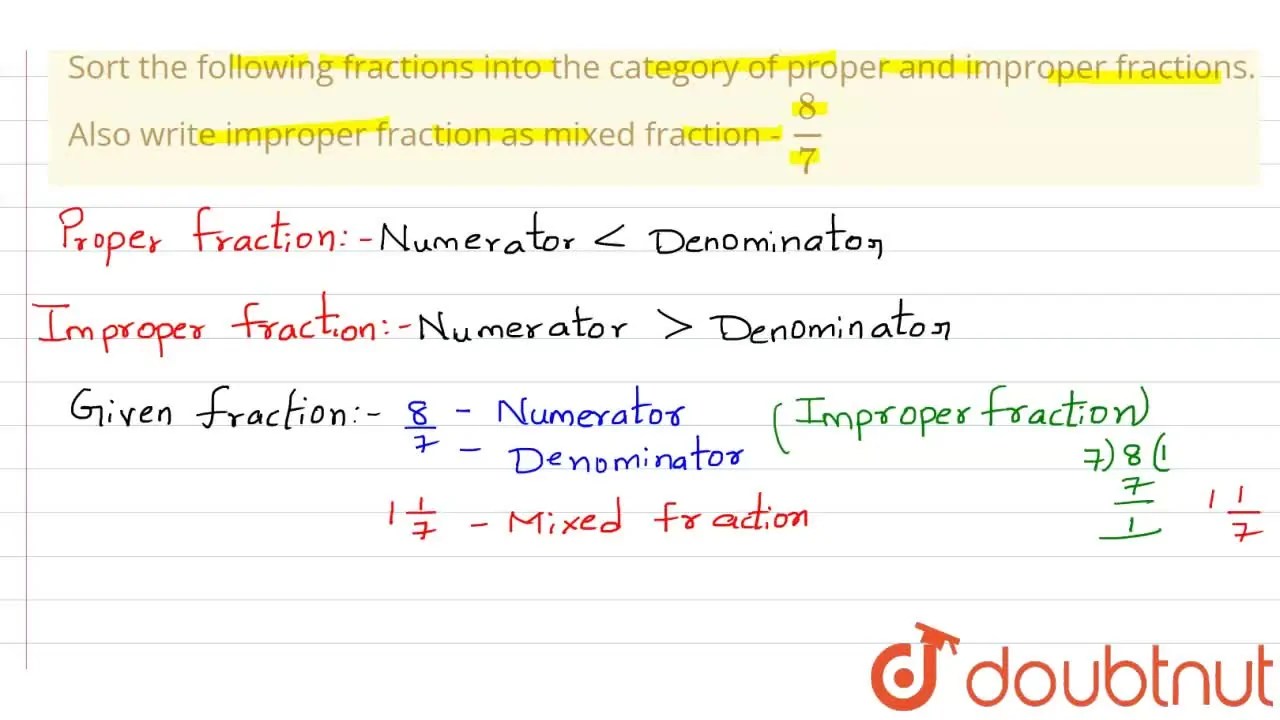 Sort the following fractions into the category of proper and improper fractions.
Also write improper fraction as mixed fraction - 8/7
Proper fraction:- Numerator < Denominator
Improper fraction:- Numerator > Denominator
Given fraction:- 8/7 - Numerator (Improper fraction)
- Denominator
7) 8 (1
7
1
1 1/7 - Mixed fraction
1 1/7
doubtnut